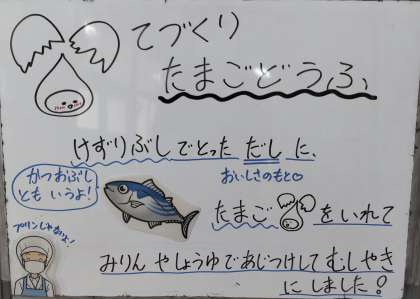 てづくり
たまごどうふ、
けずりぶしでとった だし に、
おいしさのもと♡
かつおぶし
とも いうよ!
たまご をいれて
プリンじゃないよ!
みりん やしょうゆであじつけして むしやき
に しました!